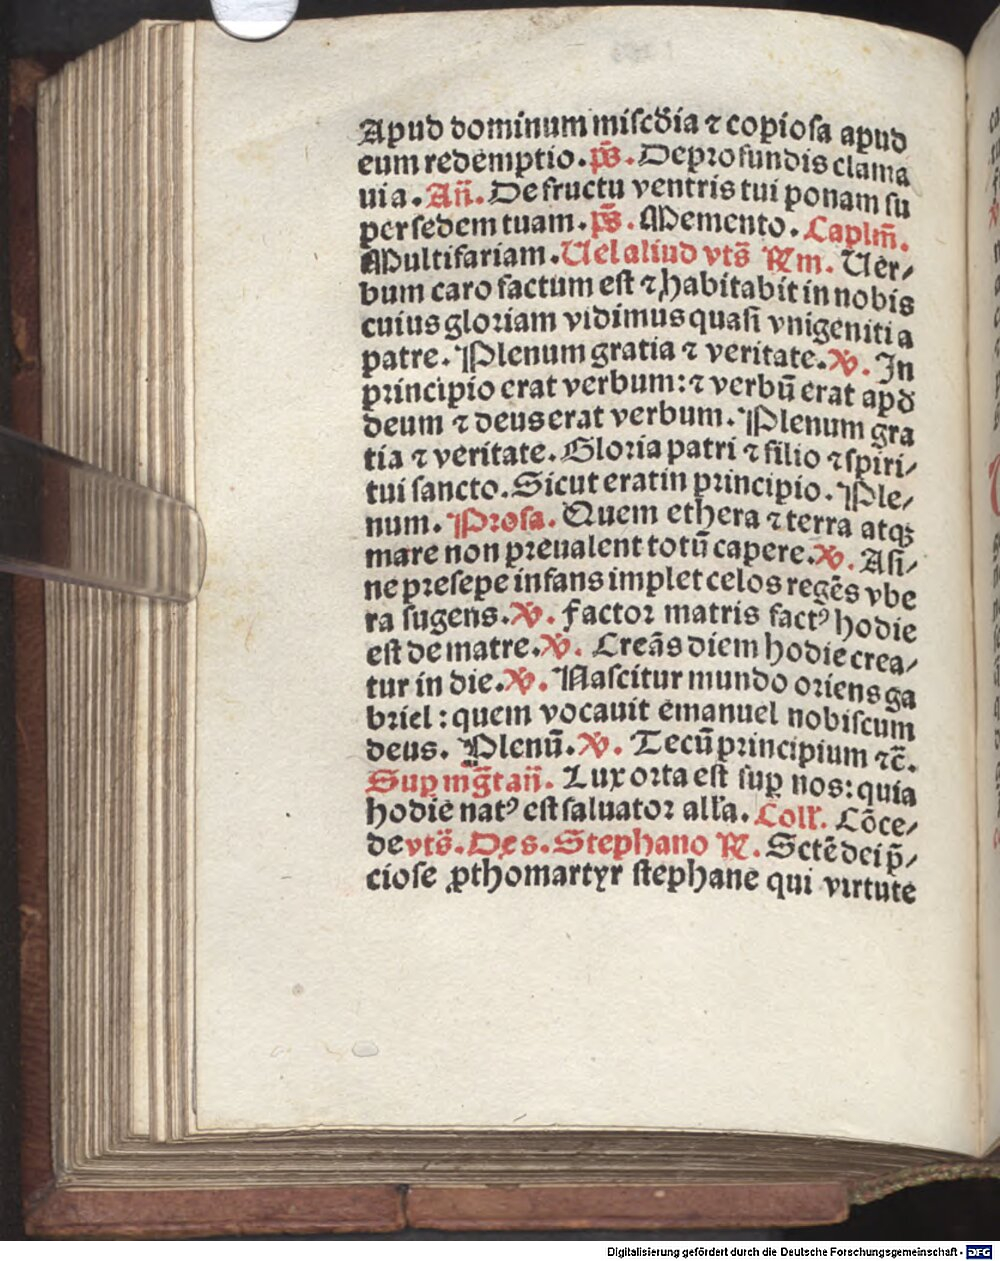 Apud dominum miscd̄ia ⁊ copiosa apud
eum redemptio. ps̄. De profundis clama
ui a. Añ. De fructu ventris tui ponam su
per sedem tuam. ps̄. Memento. Caplm̄.
Multifariam. Uel aliud vts̄ R̃m. Uer⸗
bum caro factum est ⁊ habitabit in nobis
cuius gloriam vidimus quasi vnigeniti a
patre. Plenum gratia ⁊ veritate. ℣. In
principio erat verbum: ⁊ verbū erat apd̄
deum ⁊ deus erat verbum. Plenum gra
tia ⁊ veritate. Gloria patri ⁊ filio ⁊ spiri⸗
tui sancto. Sicut erat in principio. Ple⸗
num. Prosa. Quem ethera ⁊ terra atqꝫ
mare non preualent totū capere. ℣. Asi⸗
ne presepe infans implet celos regēs vbe
ra sugens. ℣. Factor matris factꝰ hodie
est de matre. ℣. Creās diem hodie crea⸗
tur in die. ℣. Nascitur mundo oriens ga
briel: quem vocauit emanuel nobiscum
deus. Plenū. ℣. Tecū principium ⁊c̄.
Suꝑ mḡt añ. Lux orta est suꝑ nos: quia
hodie natꝰ est saluator alla. Coll. Cōce⸗
de vts̄. De s. Stephano R̃. Sctē dei p̄⸗
ciose ꝓthomartyr stephane qui virtute
Digitalisierung gefördert durch die Deutsche Forschungsgemeinschaft - DFG